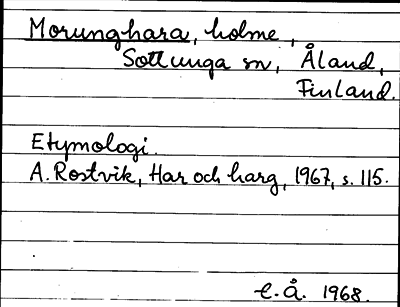 Morunghara, holme,
Sottunga sn, Åland,
Finland.
Etymologi.
A. Rostvik, Har och harg, 1967, s. 115.
C. Å. 1968.